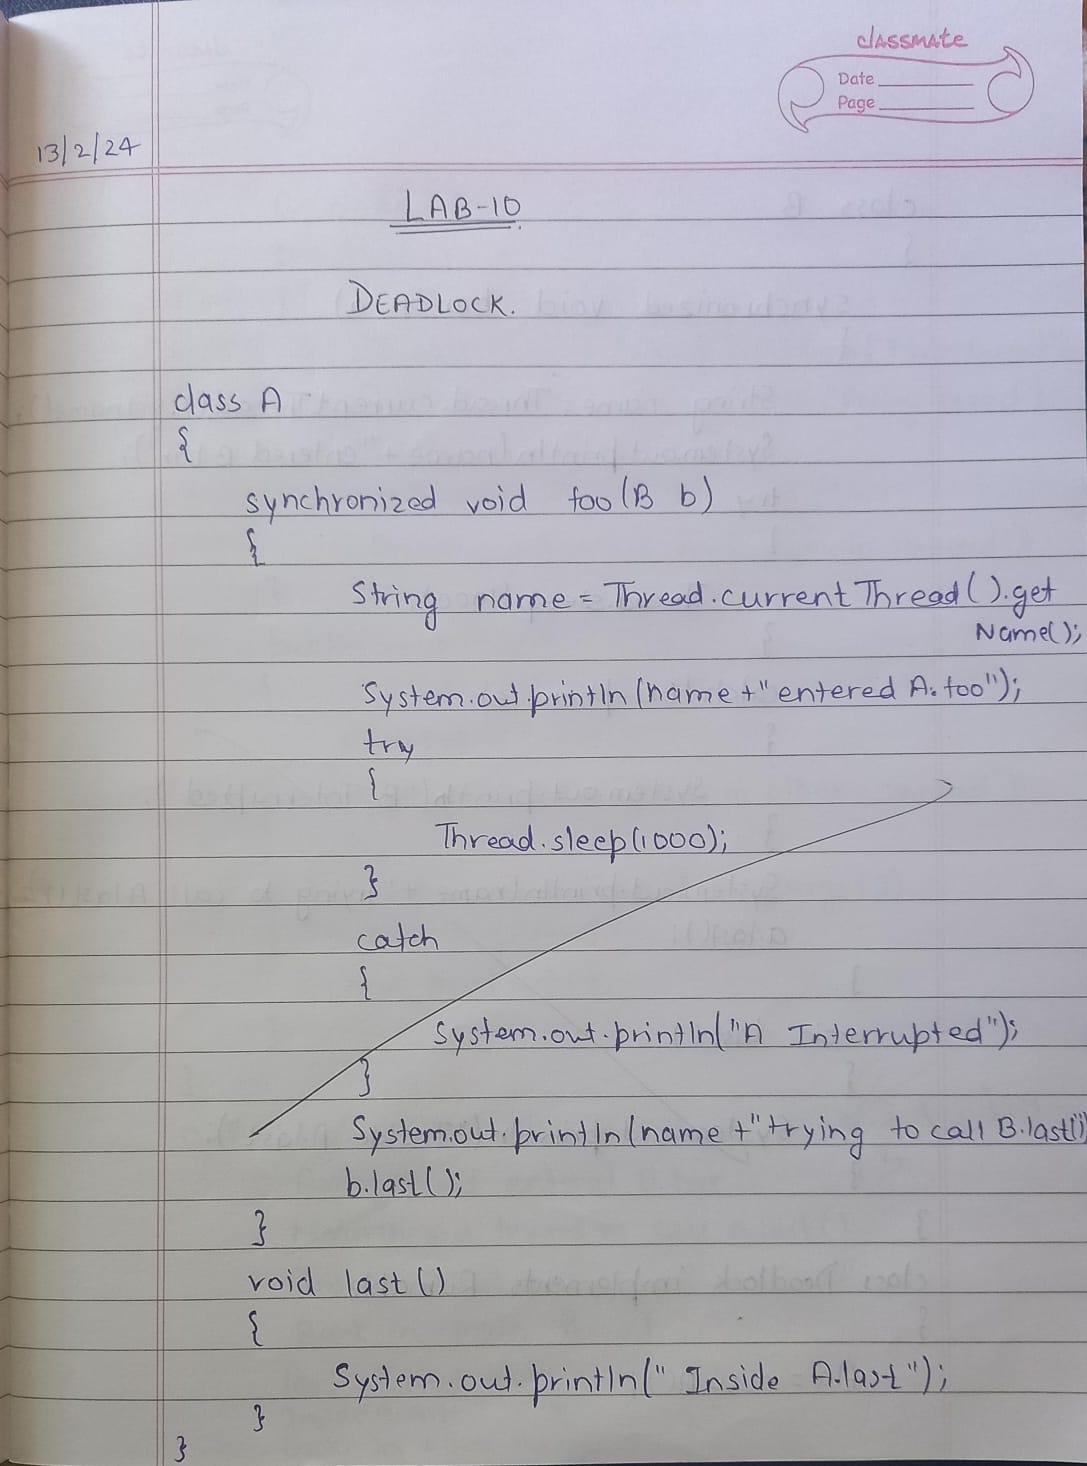 classmate
Date
Page
13/2/24
LAB-10
DEADLOCK.
class A
{
synchronized void foo(B b)
{
String name = Thread.currentThread().get
Name();
System.out.println(name+"entered A.foo");
try
{
Thread.sleep(1000);
}
catch
{
System.out.println("A Interrupted");
}
System.out.println(name+"trying to call B.last()
b.last();
}
void last()
{
System.out.println(" Inside A.last");
}
}